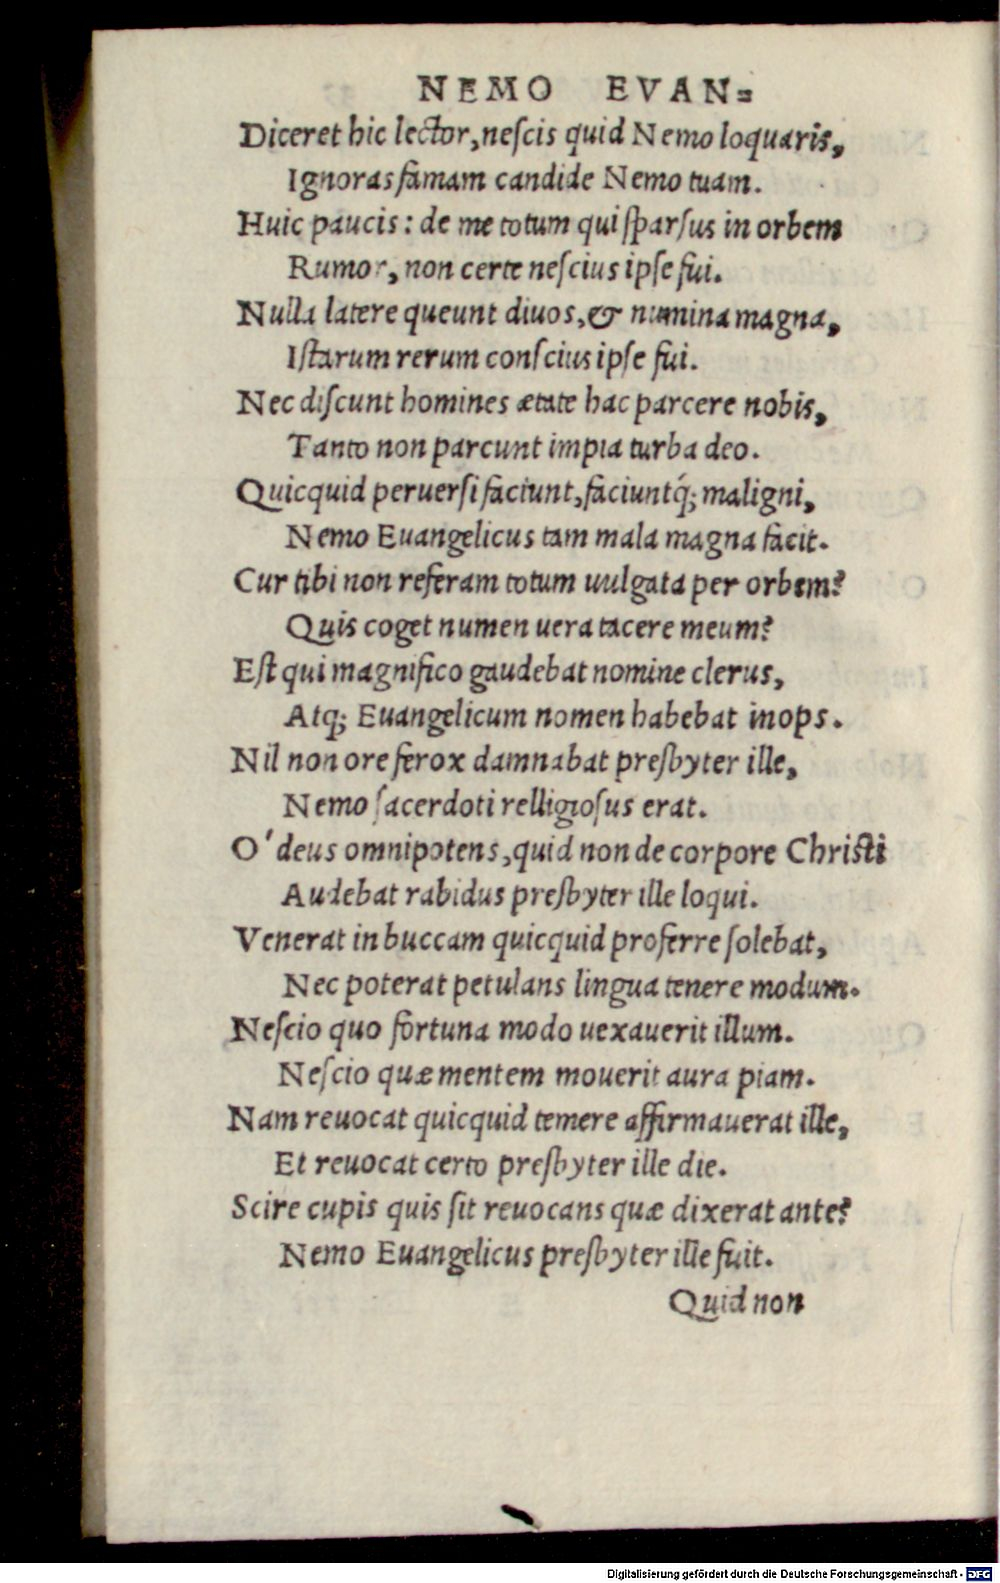 NEMO EVAN=
Diceret hic lector, neſcis quid Nemo loquaris,
Ignoras famam candide Nemo tuam.
Huic paucis: de me totum qui ſparſus in orbem
Rumor, non certe neſcius ipſe fui.
Nulla latere queunt diuos, & numina magna,
Iſtarum rerum conſcius ipſe fui.
Nec diſcunt homines ætate hac parcere nobis,
Tanto non parcunt impia turba deo.
Quicquid peruerſi faciunt, faciuntq́; maligni,
Nemo Euangelicus tam mala magna facit.
Cur tibi non referam totum uulgata per orbem?
Quis coget numen uera tacere meum?
Eſt qui magnifico gaudebat nomine clerus,
Atq; Euangelicum nomen habebat inops.
Nil non ore ferox damnabat presbyter ille,
Nemo ſacerdoti relligioſus erat.
O' deus omnipotens, quid non de corpore Chriſti
Audebat rabidus preſbyter ille loqui.
Venerat in buccam quicquid proferre ſolebat,
Nec poterat petulans lingua tenere modum.
Neſcio quo fortuna modo uexauerit illum.
Neſcio quæ mentem mouerit aura piam.
Nam reuocat quicquid temere affirmauerat ille,
Et reuocat certo preſbyter ille die.
Scire cupis quis ſit reuocans quæ dixerat ante?
Nemo Euangelicus preſbyter ille fuit.
Quid non
Digitalisierung gefördert durch die Deutsche Forschungsgemeinschaft - DFG